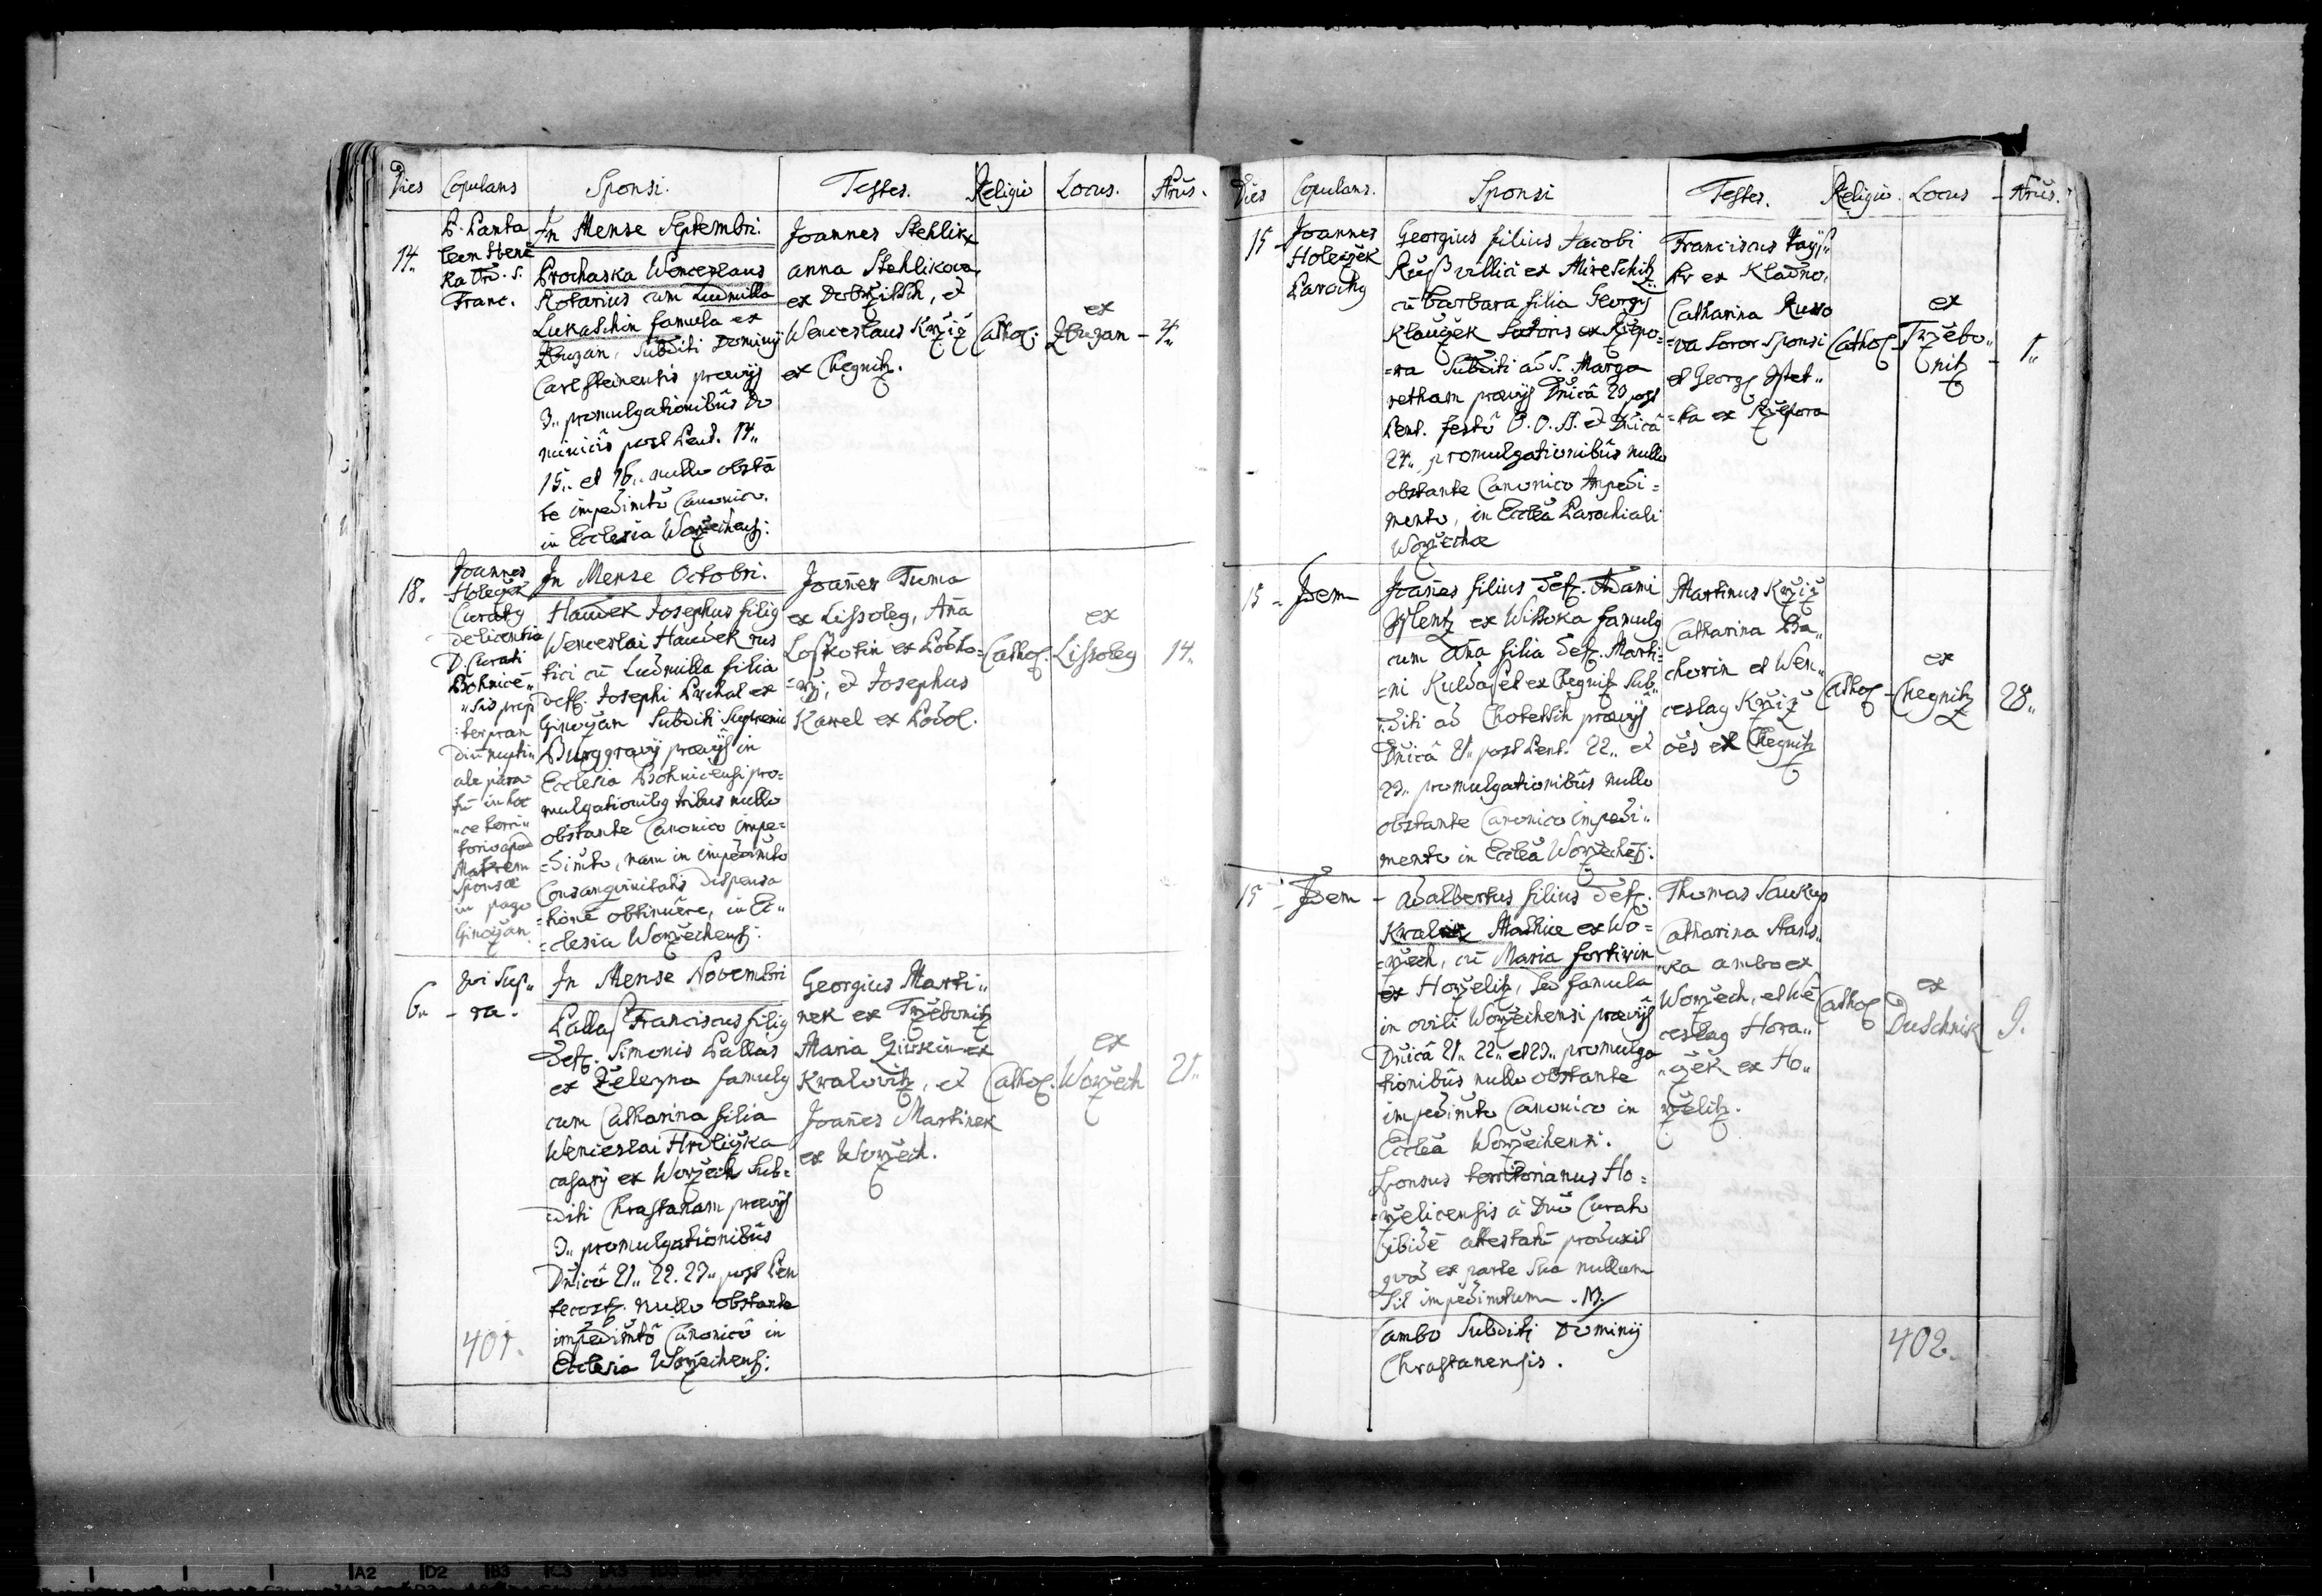 Dies Copulans Sponsi. Testes. Religio Locus. Nrus.
14.
P. Panta
leon
Franc.
In Mense Septembri.
Prochaska Wenceslaus
Rotarius cum Ludmilla
Lukaschin famula ex
Zbuzan, Subditi Dominij
Carlsteinensis praevijs
3. promulgationibus Do
minicis post Pent. 14.
15. et 16. nullo obstã
te impedimtõ Canonico.
in Ecclesia Worzechensj:
Joannes Stehlik
anna Stehlikova
ex et
Wenceslaus Krziž
ex Chegnitz.
Cathol:
ex
Zbuzan
4.
18.
Joannes
Holeczek
Curatg
de licentia
D. Curati
in pago
In Mense Octobri.
Haudek Josephus filig
Wenceslai Haudek rus
tici cũ Ludmilla filia
deff. Josephi ex
Ginoczan Subditi Supremi
Burggravij praevijs in
Ecclesia pro=
mulgationibg tribus nullo
obstante Canonico impe=
=dimto, nam in impedimto
Consanguinitatis dispensa
=tione obtinuere, in Ec"
=clesia Worzechensj:
Joañes Tuma
ex Lissoleg, Aña
Loskotin ex
et Josephus
Karel ex
Cathol.
ex
Lissoleg
14.
6.
uti Sup"
ra.
In Mense Novembri
Pallas Franciscus filig
deff. Simonis Pallas
ex Železna famulg
cum Catharina filia
Wenceslai Hrdliczka
casarij ex Worzech Sub=
diti Chrastanam praevijs
3. promulgationibus
Dñicâ 21. 22. 23. post Pen
tecost. nullo obstante
impedimtõ Canonicô in
Ecclesia Worzechensj:
Georgius Marti"
nek ex Trzebonitz
Maria ex
Kralovitz, et
Joañes Martinek
ex Worzech.
Cathol.
ex
Worzech
21.
401.
Dies Copulans. Sponsi Testes. Religio. Locus Nrus.
15
Joannes
Holeczek
Parochg
Georgius filius Jacobi
Russ villici ex Mireschitz
cũ Barbara filia Georgij
Klauczek Sutoris ex Rzepo=
=ra Subditi ad S. Marga
retham praevijs Dñicâ 23 post
Pent. festô O. O. S. et Dñicâ
24. promulgationibus nullo
obstante Canonico Impedi=
mento, in Ecclã Parochiali
Worzechae
Franciscus
ex Kladno,
Catharina Russo
=va Soror Sponsi
et Georg
=ka ex Rzepora
Cathol
ex
Trzebo"
nitz
1.
15
Idem
Joañes filius deff. Adami
ex Wissoka famulg
cum Aña filia deff. Marti=
=ni ex Chegnitz Sub"
diti ad Chotetsch praevijs
Dñicâ 21. post Pent. 22. et
23. promulgationibus nullo
obstante Canonico impedi"
mento in Ecclã Worzechesj:
Martinus Krziž
Catharina Ba"
chorin et Wen"
ceslag Krziž
oẽs ex Chegnitz
Cathol
ex
Chegnitz
28.
15
Idem
Adalbertus filius deff.
Mathiae ex Wo=
=rzech, cũ Maria fortwin
ex Horzelitz, Sed famula
in ovili Worzechensi praevijs
Dñicâ 21. 22. et 23. promulga
tionibus nullo obstante
impedimto Canonico in
Ecclã Worzechensi.
Sponsus territorianus Ho=
=rzelicensis â Dno Curato
ibidẽ attestatũ produxit
quod ex parte Sua nullum
Sit impedimtum.
ambo Subditi Dominij
Chrastanensis.
Thomas Saukup
Catharina Hans"
"ka ambo ex
Worzech, et Wẽ
ceslag Hora"
"czek ex Ho"
rzelitz.
Cathol
ex
Duschnik
9.
402.
A2 D2 B3 C3 A3